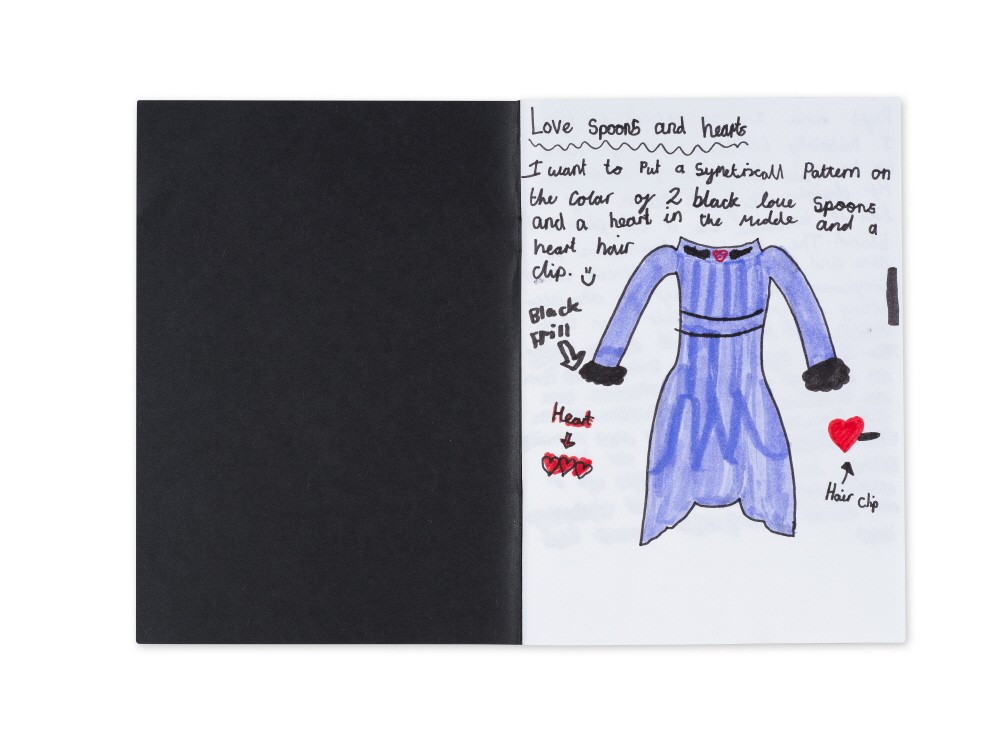 Love Spoons and hearts
I want to Put a Symetriscall Pattern on
the Color of 2 black love Spoons
and a heart in the Middle and a
heart hair
clip.
Black
Frill
Heart
Hair Clip